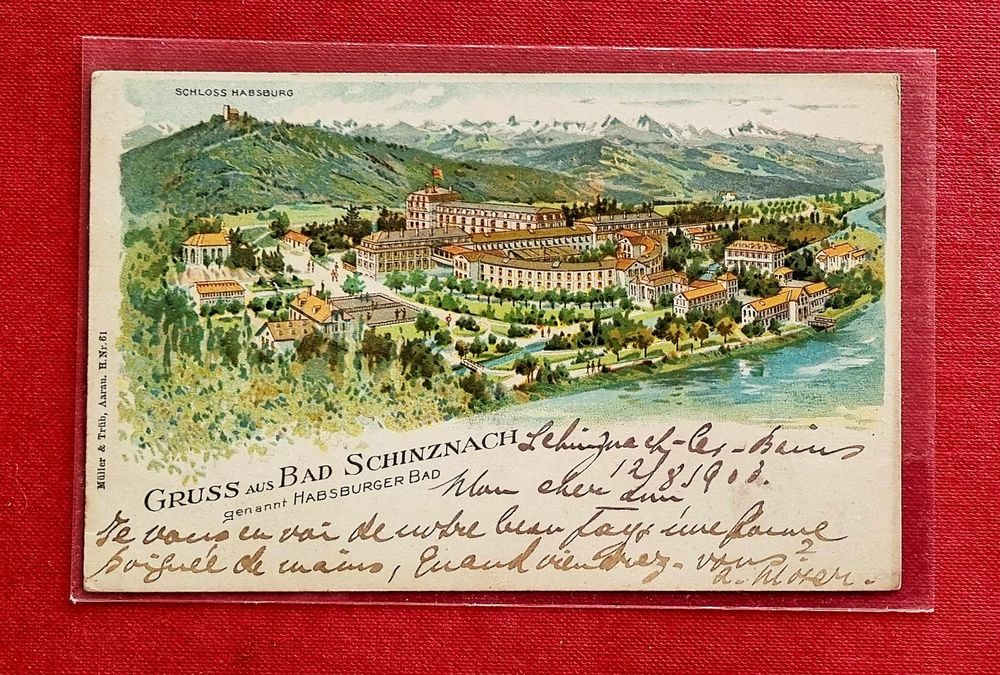 SCHLOSS HABSBURG
Müller & Trüb, Aarau. H.Nr. 61
GRUSS AUS BAD SCHINZNACH
genannt HABSBURGER BAD
Schinznach-les-Bains
12 8 1903.
Mon cher ami
Je vous envoi de notre beau pays une bonne
poignée de mains, Quand viendrez-vous?
A. Moser.